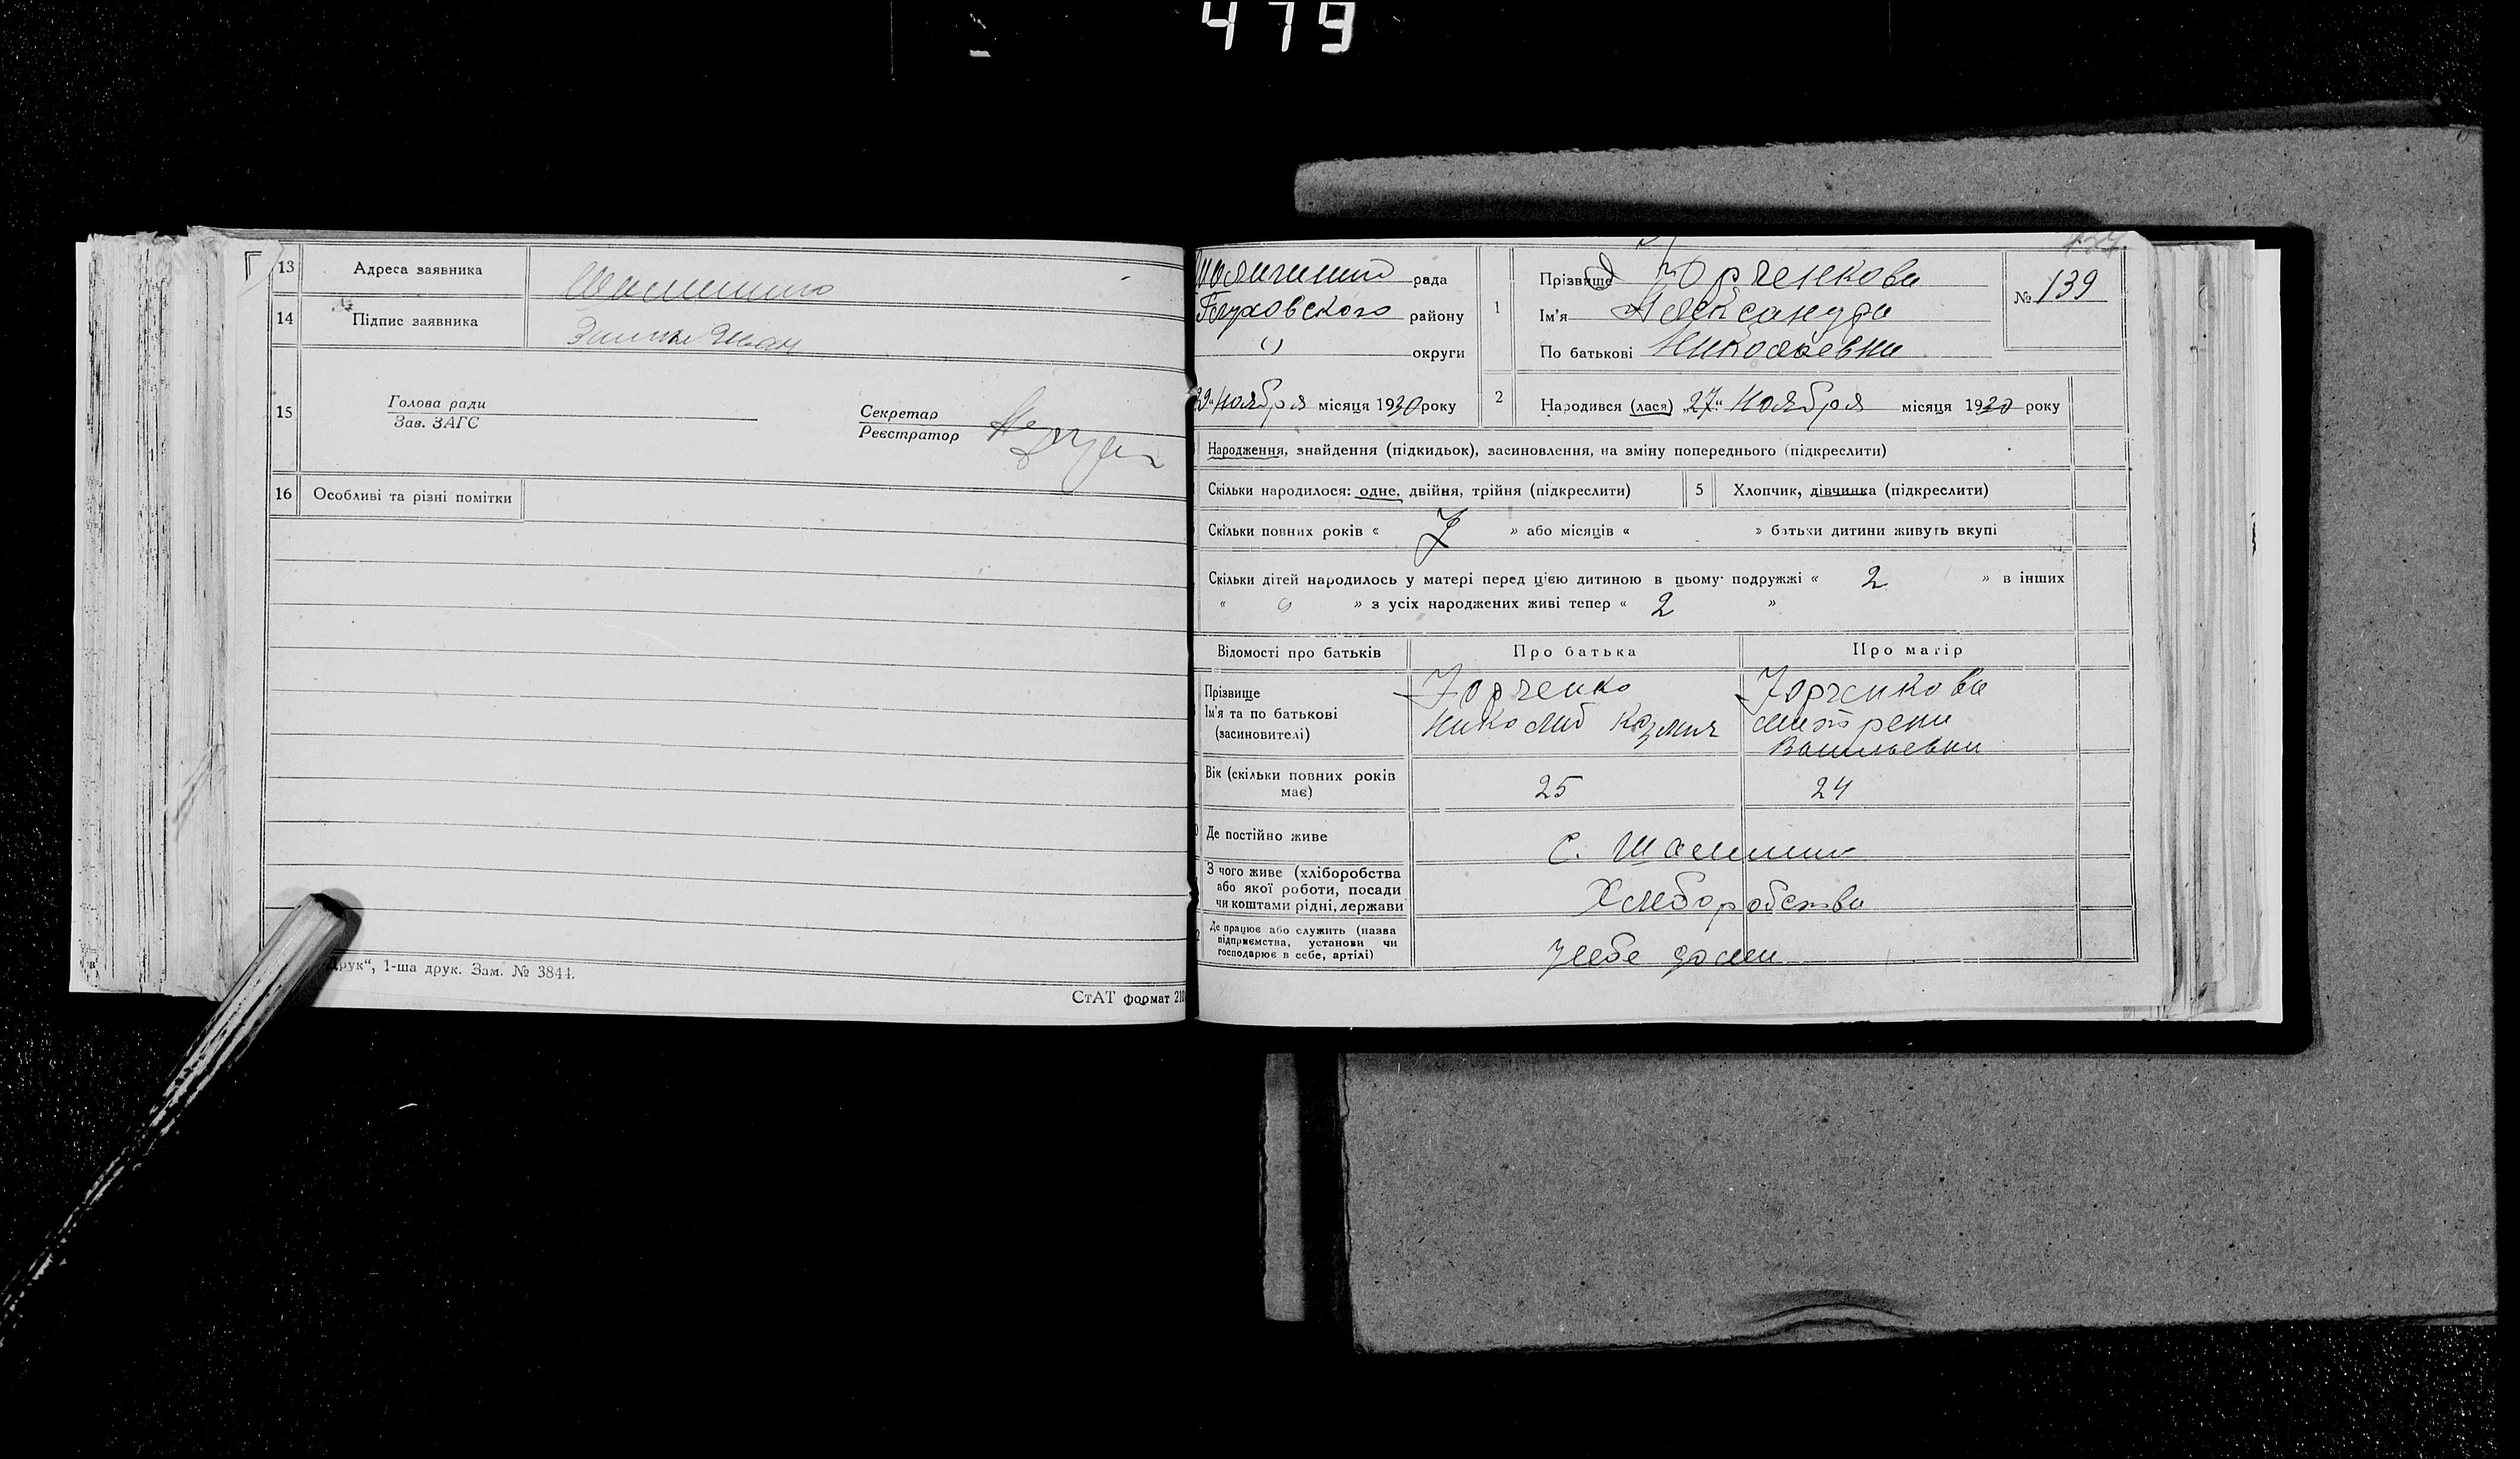 479
13 Адреса заявника
14 Підпис заявника
15 Голова ради
Зав. ЗАГС
Секретар
Реєстратор
16 Особливі та різні помітки
Друк“, 1-ша друк. Зам. № 3844.
СтАТ формат 210
рада
Глуховского району
округи
29 Ноября місяця 1930 року
1 Прізвище
Ім'я Александра
По батькові Николаевна
№ 139
2 Народився (лася) „27“ Ноября місяця 1930 року
Народження, знайдення (підкидьок), засиновлення, на зміну попереднього (підкреслити)
Скільки народилося: одне, двійня, трійня (підкреслити) 5 Хлопчик, дівчинка (підкреслити)
Скільки повних років « 7 » або місяців « » батьки дитини живуть вкупі
Скільки дітей народилось у матері перед цією дитиною в цьому подружжі « 2 » в інших
« » з усіх народжених живі тепер « 2 »
Відомості про батьків Про батька Про матір
Прізвище
Ім'я та по батькові
(засиновителі)
Николай
Васильевна
Вік (скільки повних років
має) 25 24
Де постійно живе с.
З чого живе (хліборобства
або якої роботи, посади
чи коштами рідні, держави
Хлеборобства
Де працює або служить (назва
підприємства, установи чи
господарює в себе, артілі)
У себе дома